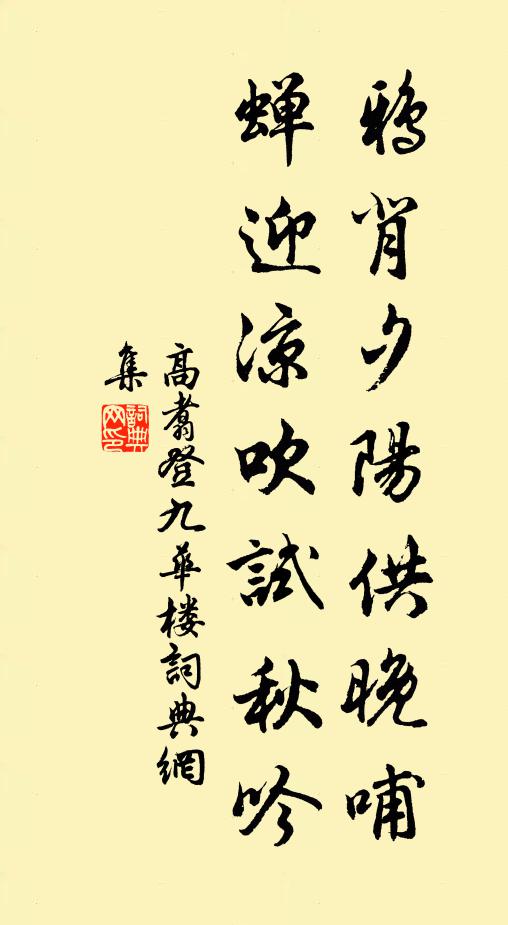 鴉背夕陽供晚哺
蝉迎涼吹試秋吟
高翥登九华楼詞典網
集
詞典
网印